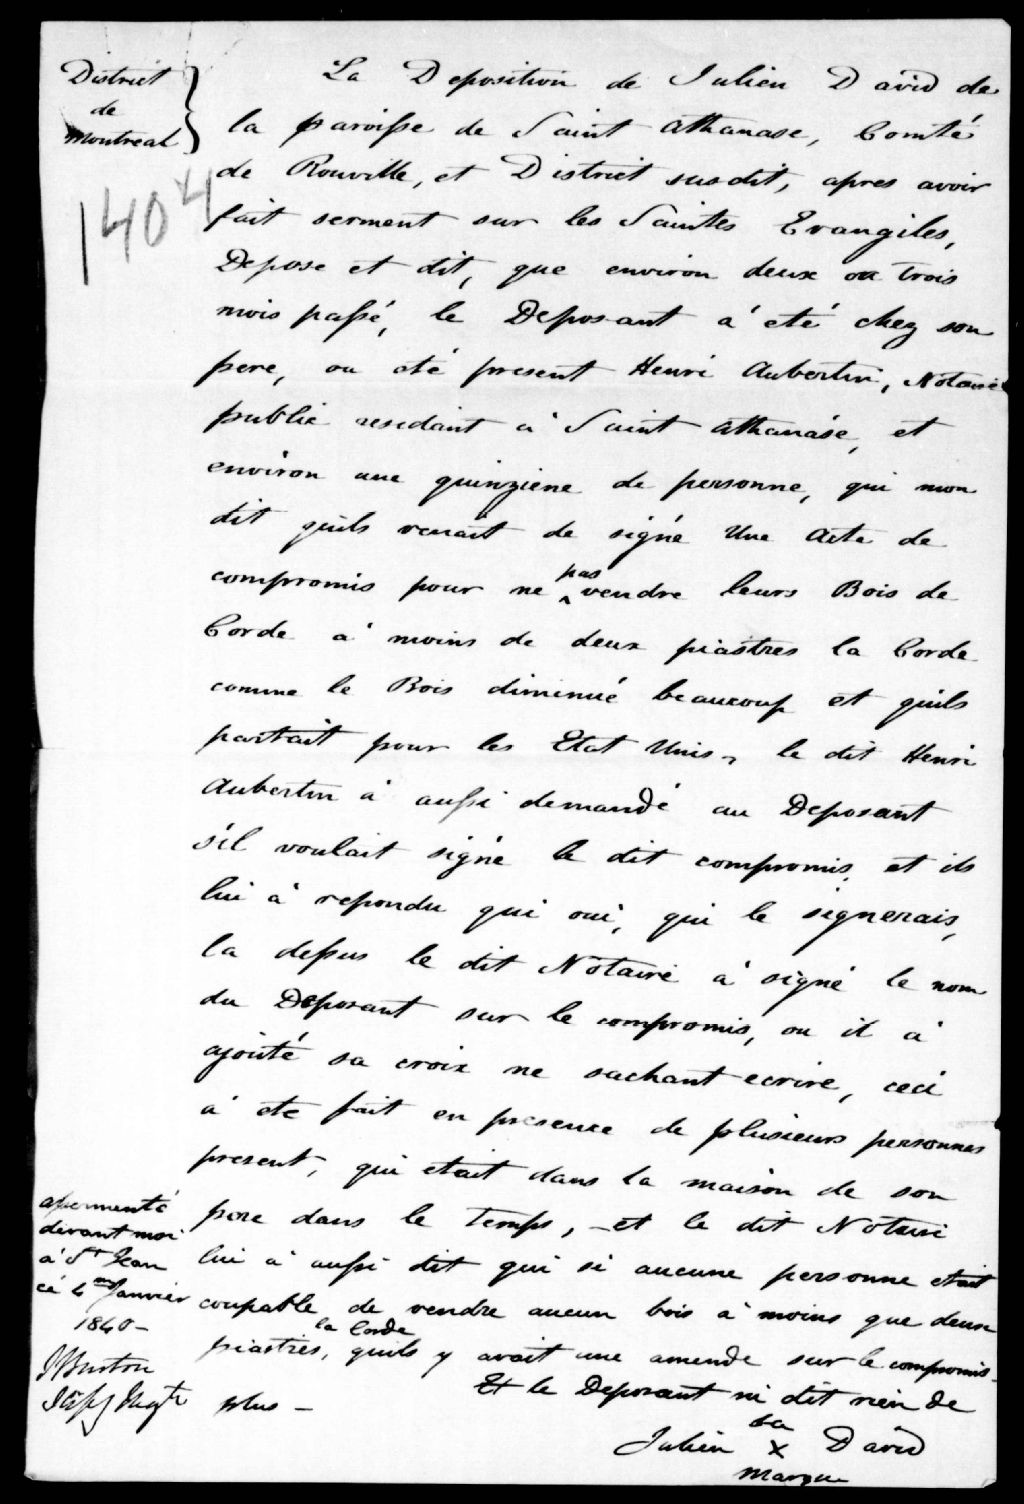 District
de
Montreal
1404
La Deposition de Julien David de
la paroisse de Saint Athanase, Comté
de Rouville, et District susdit, apres avoir
fait serment sur les Saintes Evangiles,
Depose et dit, que environ deux ou trois
mois passé, le Deposant a' eté chez son
pere, ou eté present Henri Aubertin, Notaire
public residant a' Saint Athanase, et
environ une quinziene de personne, qui mon
dit quils venait de signé Une Acte de
compromis pour ne pas vendre leurs Bois de
Corde a' moins de deux piastres la Corde
comme le Bois diminué beaucoup et quils
partait pour les Etat Unis, le dit Henri
Aubertin a' aussi demandé au Deposant
s'il voulait signé le dit compromis, et ils
lui a' repondu qui oui, qui le signerais,
la dessus le dit Notaire a' signé le nom
du Deposant sur le compromis, ou il a'
ajouté sa croix ne sachant ecrire, ceci
a' eté fait en presence de plusieurs personnes
present, qui etait dans la maison de son
pere dans le temps, - et le dit Notaire
lui a' aussi dit qui si aucune personne etait
coupable de vendre aucun bois a' moins que deux
piastres la Corde, quils y avait une amende sur le compromis -
Et le Deposant ni dit rien de
plus -
Julien sa x marque David
assermenté
devant moi
a' St Jean
cé 4me Janvier
1840 -